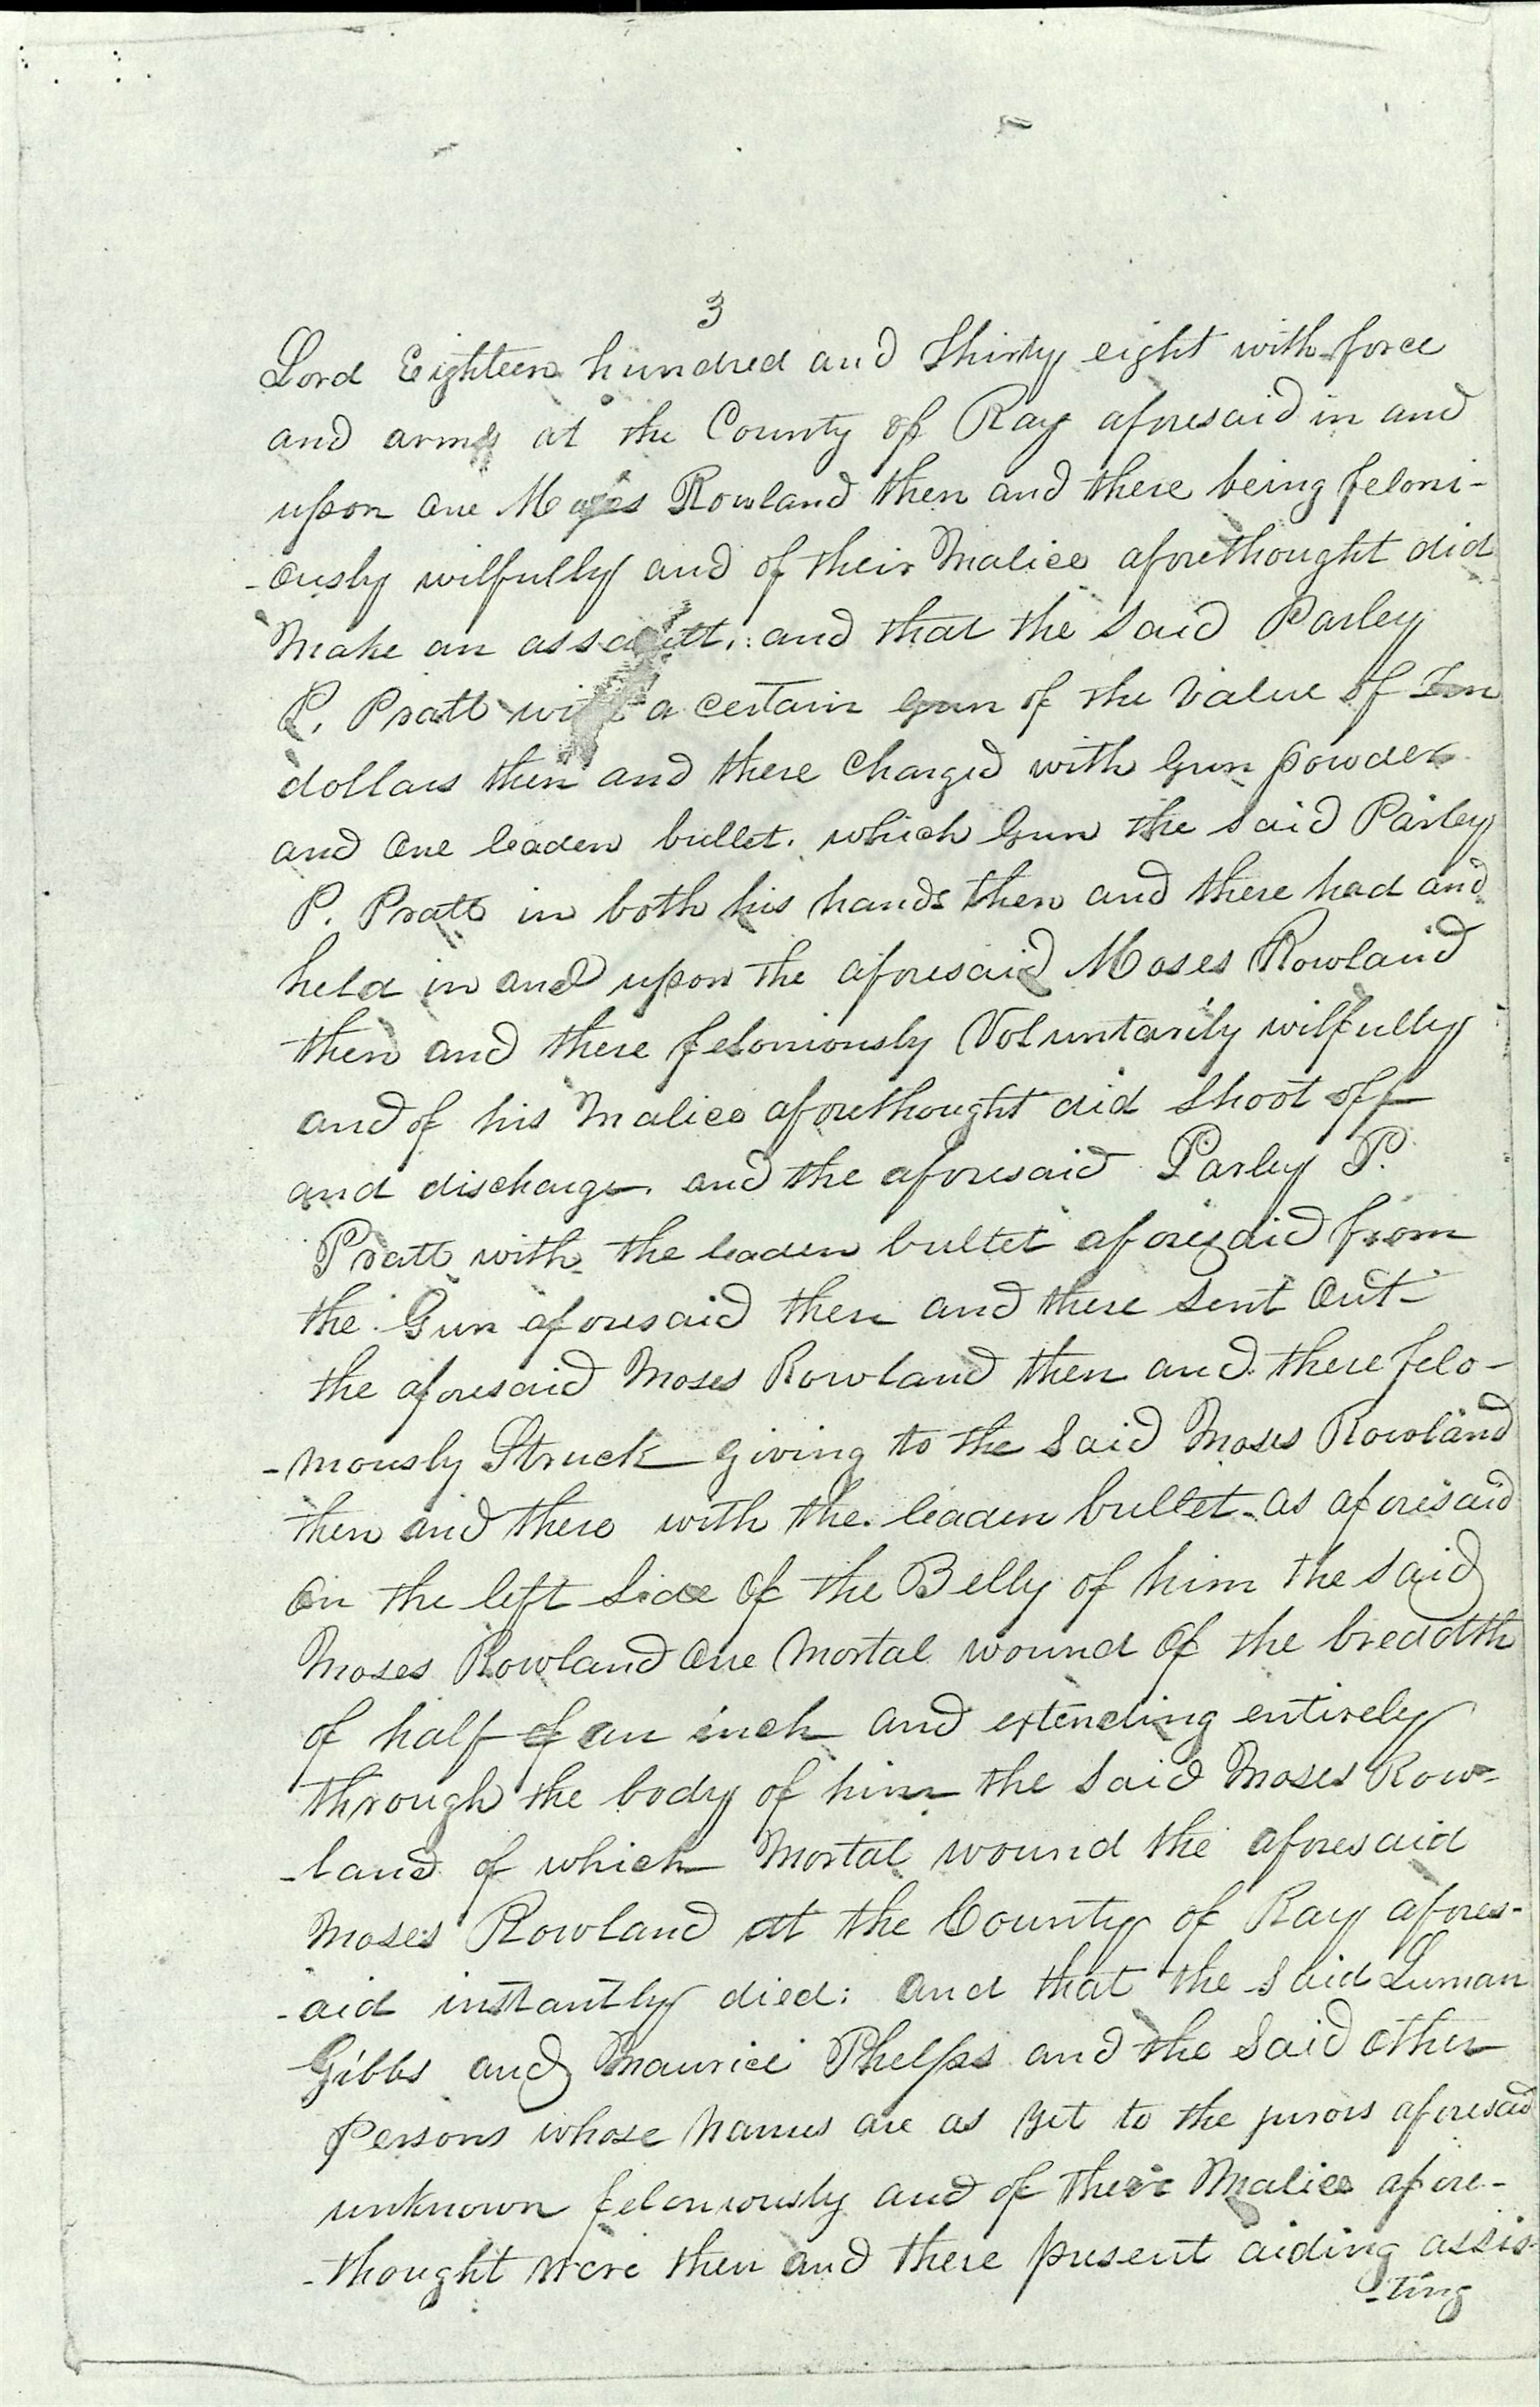 3
Lord Eighteen hundred and Thirty eight with force
and arms at the County of Ray aforesaid in and
upon one Moses Rowland then and there being feloni-
-ously wilfully and of their Malice aforethought did
Make an assault: and that the said Parley
P. Pratt with a certain gun of the Value of Ten
dollars then and there charged with Gun powder
and one leaden bullet. which Gun the said Parley
P. Pratt in both his hands then and there had and
held in and upon the aforesaid Moses Rowland
then and there feloniously Voluntarily wilfully
and of his Malice aforethought did Shoot off
and discharge. and the aforesaid Parley P.
Pratt with the leaden bullet aforesaid from
the Gun aforesaid then and there sent out
the aforesaid Moses Rowland then and there felo-
-niously Struck giving to the said Moses Rowland
then and there with the leaden bullet as aforesaid
on the left side of the Belly of him the said
Moses Rowland One Mortal wound of the breadth
of half of an inch and extending entirely
through the body of him the said Moses Row-
-land of which Mortal wound the aforesaid
Moses Rowland at the County of Ray afores-
-aid instantly died: and that the said Luman
Gibbs and Maurice Phelps and the said other
Persons whose names are as yet to the jurors aforesaid
unknown feloniously and of their Malice afore-
-thought were then and there present aiding assis-
-ting